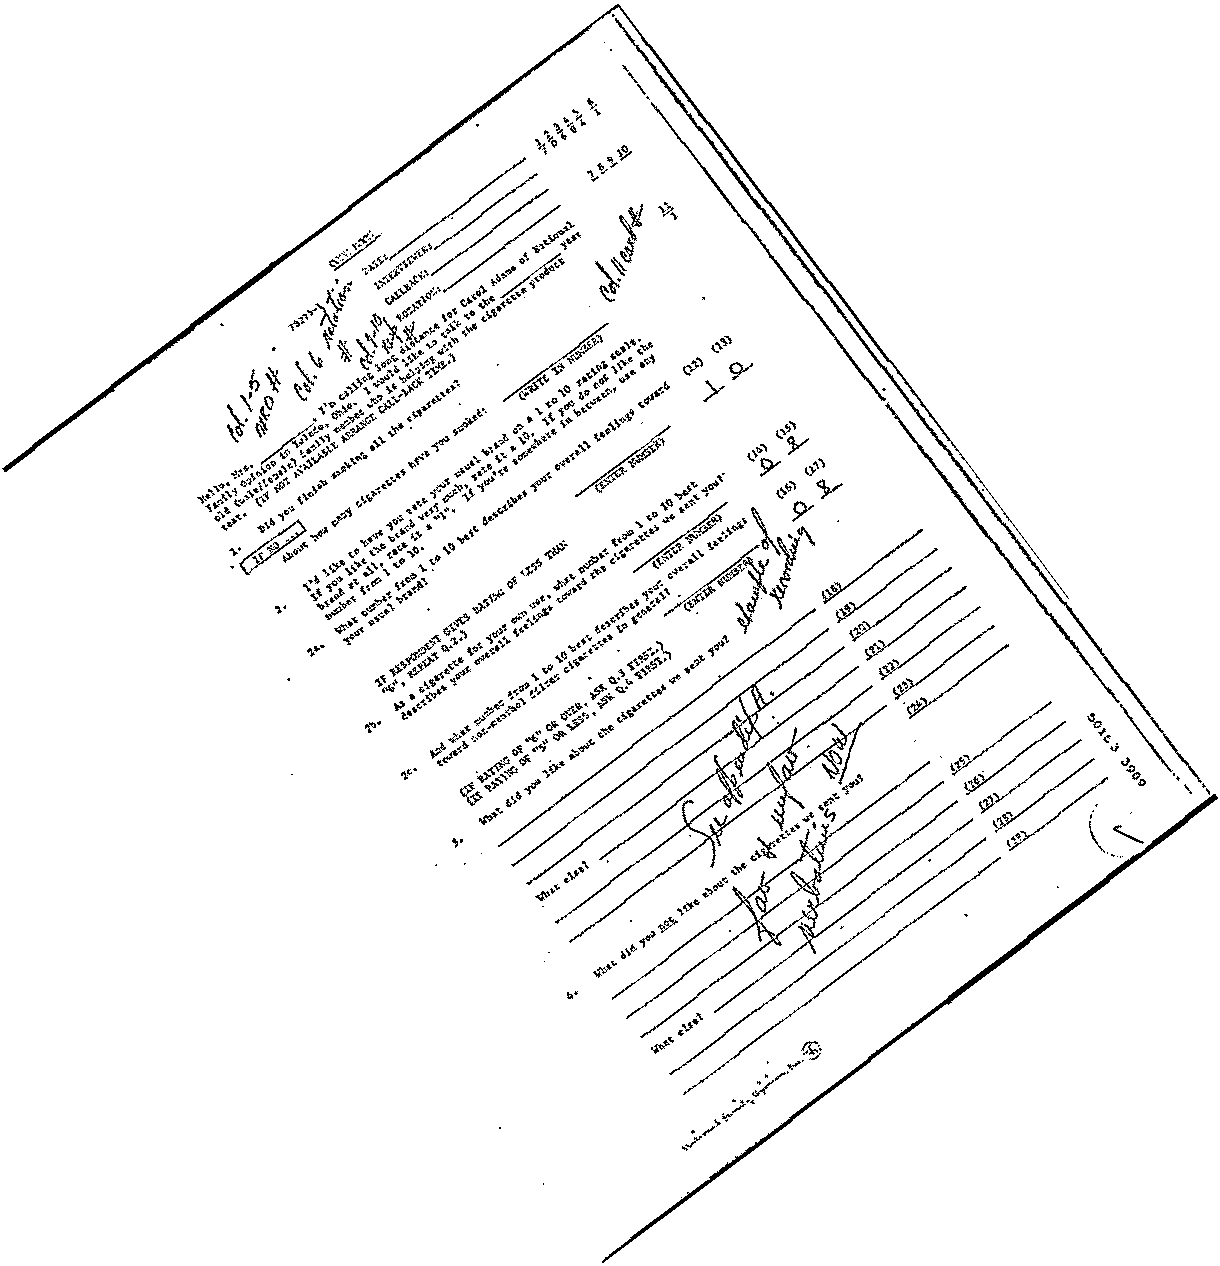 DATE:
INTERVIEWER:
CALLBACK:
ROTATION:
1 2 3 4 5 6
7 8 9 10
Col. 1-5
Col. 6 rotation
#
Col. 7-10
Col. 11 card #
11
Hello, Mrs. , I'm calling long distance for Carol Adams of National
Family Opinion in Toledo, Ohio. I would like to talk to the year
old (male/female) family member who is helping with the cigarette product
test. (IF NOT AVAILABLE ARRANGE CALL-BACK TIME.)
1. Did you finish smoking all the cigarettes?
IF NO
About how many cigarettes have you smoked?
(WRITE IN NUMBER)
2. I'd like to have you rate your usual brand on a 1 to 10 rating scale.
If you like the brand very much, rate it a 10. If you do not like the
brand at all, rate it a "1". If you're somewhere in between, use any
number from 1 to 10.
2a. What number from 1 to 10 best describes your overall feelings toward
your usual brand?
(ENTER NUMBER)
(12) (13)
1 0
IF RESPONDENT GIVES RATING OF LESS THAN
"6", REPEAT Q.2.)
2b. As a cigarette for your own use, what number from 1 to 10 best
describes your overall feelings toward the cigarettes we sent you?
(ENTER NUMBER)
(14) (15)
0 8
2c. And what number from 1 to 10 best describes your overall feelings
toward non-menthol filter cigarettes in general?
(ENTER NUMBER)
(16) (17)
0 8
example of
recording
(IF RATING OF "6" OR OVER, ASK Q.3 FIRST.)
(IF RATING OF "5" OR LESS, ASK Q.4 FIRST.)
3. What did you like about the cigarettes we sent you?
(18)
(19)
(20)
(21)
What else?
(22)
(23)
(24)
4. What did you NOT like about the cigarettes we sent you?
(25)
(26)
What else?
(27)
(28)
(29)
50163 3909